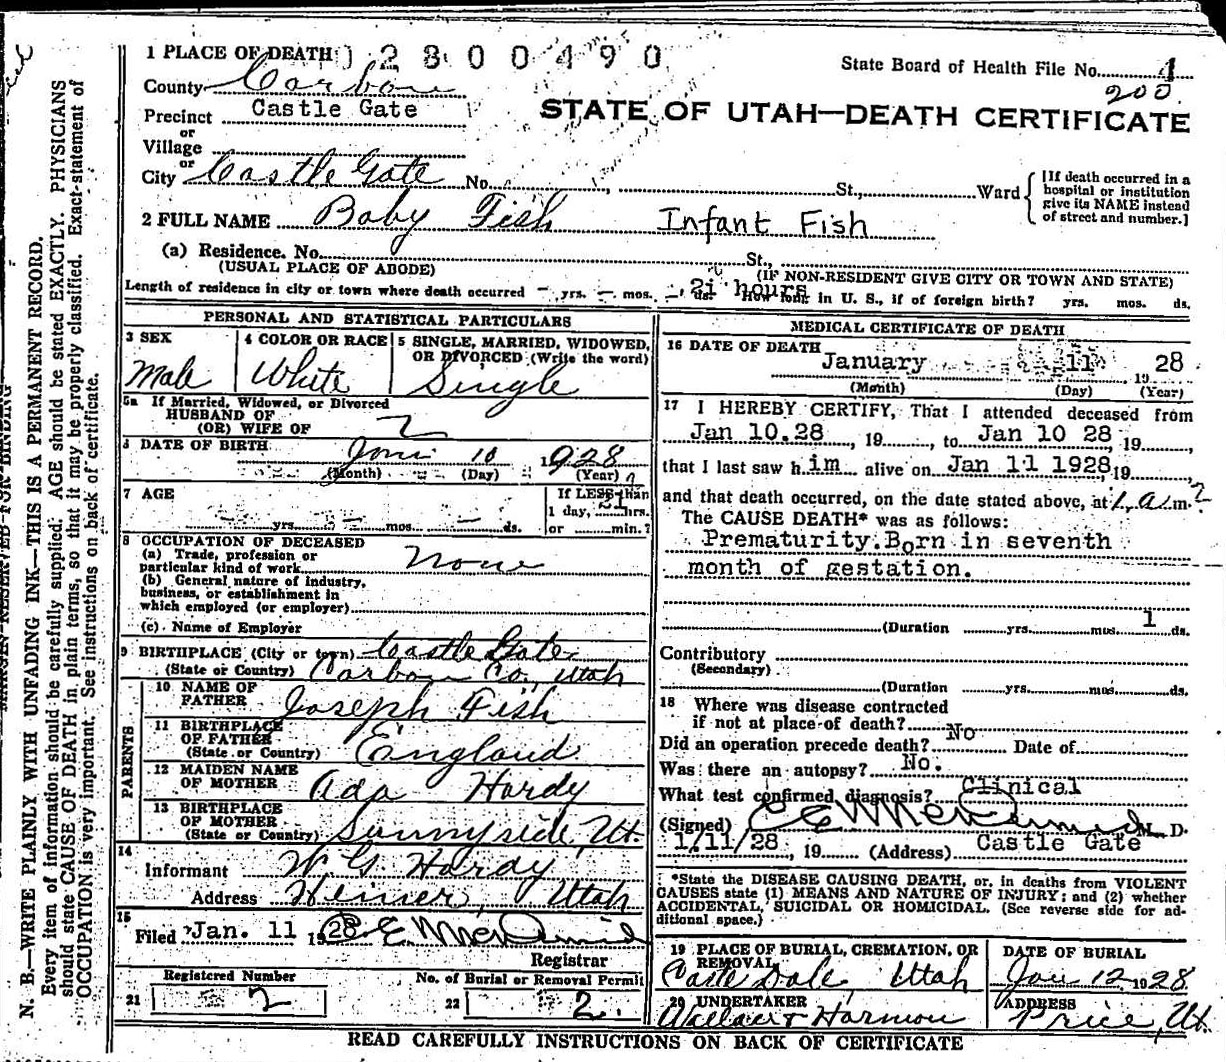 1 PLACE OF DEATH 02800490
State Board of Health File No. 4
200
County Carbon
STATE OF UTAH—DEATH CERTIFICATE
Precinct Castle Gate
or
Village
or
City Castle Gate No. St., Ward
[If death occurred in a hospital or institution give its NAME instead of street and number.]
2 FULL NAME Baby Fish Infant Fish
(a) Residence. No. St.,
(USUAL PLACE OF ABODE) (IF NON-RESIDENT GIVE CITY OR TOWN AND STATE)
Length of residence in city or town where death occurred — yrs. — mos. — ds. 21 hours How long in U. S., if of foreign birth? yrs. mos. ds.
PERSONAL AND STATISTICAL PARTICULARS
3 SEX Male
4 COLOR OR RACE White
5 SINGLE, MARRIED, WIDOWED, OR DIVORCED (Write the word) Single
5a If Married, Widowed, or Divorced
HUSBAND OF
(OR) WIFE OF
6 DATE OF BIRTH Jan 10 1928
(Month) (Day) (Year)
7 AGE — yrs. — mos. — ds.
If LESS than
1 day, 21 hrs.
or min.?
8 OCCUPATION OF DECEASED
(a) Trade, profession or
particular kind of work None
(b) General nature of industry,
business, or establishment in
which employed (or employer)
(c) Name of Employer
9 BIRTHPLACE (City or town) Castle Gate
(State or Country) Carbon Co., Utah
PARENTS
10 NAME OF
FATHER Joseph Fish
11 BIRTHPLACE
OF FATHER
(State or Country) England
12 MAIDEN NAME
OF MOTHER Ada Hardy
13 BIRTHPLACE
OF MOTHER
(State or Country) Sunnyside, Ut.
14
Informant W. G. Hardy
Address Heiner, Utah
15
Filed Jan. 11 1928 C E McDermid
Registrar
Registered Number
21 2
No. of Burial or Removal Permit
22 2.
MEDICAL CERTIFICATE OF DEATH
16 DATE OF DEATH
January 11 19 28
(Month) (Day) (Year)
17 I HEREBY CERTIFY, That I attended deceased from
Jan 10.28, 19, to Jan 10 28, 19
that I last saw him alive on Jan 11 1928, 19
and that death occurred, on the date stated above, at 1 a.m.?
The CAUSE DEATH* was as follows:
Prematurity. Born in seventh
month of gestation.
(Duration yrs. mos. 1 ds.
Contributory
(Secondary)
(Duration yrs. mos. ds.
18 Where was disease contracted
if not at place of death? No
Did an operation precede death? Date of
Was there an autopsy? No.
What test confirmed diagnosis? Clinical
(Signed) C E McDermid M. D.
1/11/28, 19 (Address) Castle Gate
*State the DISEASE CAUSING DEATH, or, in deaths from VIOLENT
CAUSES state (1) MEANS AND NATURE OF INJURY; and (2) whether
ACCIDENTAL, SUICIDAL OR HOMICIDAL. (See reverse side for ad-
ditional space.)
19 PLACE OF BURIAL, CREMATION, OR
REMOVAL
Castle Dale, Utah
DATE OF BURIAL
Jan 12 1928
20 UNDERTAKER
Wallace & Harmon
ADDRESS
Price, Ut.
READ CAREFULLY INSTRUCTIONS ON BACK OF CERTIFICATE
MARGIN RESERVED FOR BINDING
N. B.—WRITE PLAINLY WITH UNFADING INK—THIS IS A PERMANENT RECORD.
Every item of information should be carefully supplied. AGE should be stated EXACTLY. PHYSICIANS
should state CAUSE OF DEATH in plain terms, so that it may be properly classified. Exact statement of
OCCUPATION is very important. See instructions on back of certificate.